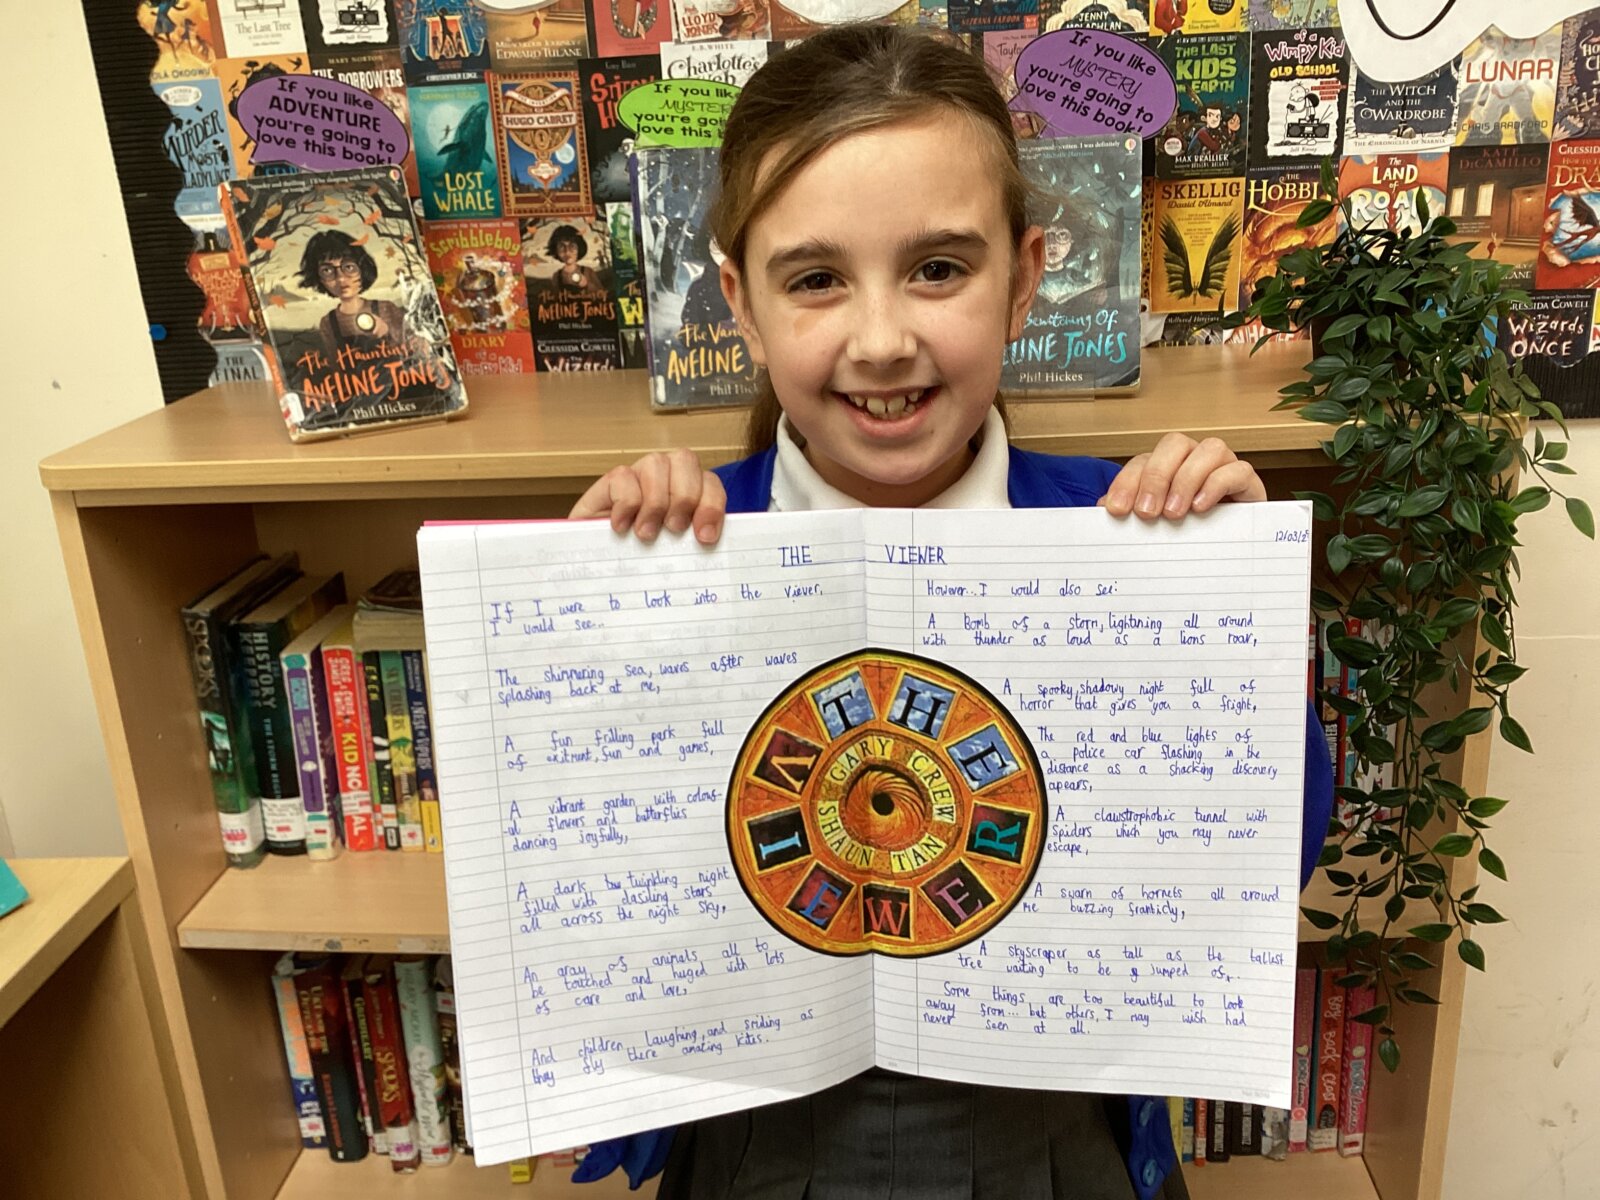 Lola Okogwu
The Last Tree
MARY NORTON
THE BORROWERS
CHRISTOPHER EDGE
EDWARD TULANE
LLOYD JONES
E.B. WHITE
Charlotte's
JENNY McLACHLAN
THE LAST KIDS ON EARTH
MAX BRALLIER
of a Wimpy Kid
OLD SCHOOL
Jeff Kinney
THE WITCH AND THE WARDROBE
THE CHRONICLES OF NARNIA
LUNAR
CHRIS BRADFORD
KATE DICAMILLO
CRESSIDA
If you like
ADVENTURE
you're going to
love this book!
If you like
MYSTERY
you're going to
love this b
If you like
MYSTERY
you're going to
love this book!
MURDER MOST LADYLIKE
THE LOST WHALE
HUGO CABRET
SKELLIG
David Almond
THE HOBBI
THE LAND OF ROA
Scribblebog
DIARY
Wimpy Kid
The Haunting
AVELINE JONES
Phil Hickes
CRESSIDA COWELL
The Wizards
THE FINAL
The Haunting
AVELINE JONES
Phil Hickes
The Van
AVELINE JO
Phil Hick
Bewitching Of
LINE JONES
Phil Hickes
CRESSIDA COWELL
The Wizards of ONCE
12/03/25
THE VIEWER
If I were to look into the viewer,
I would see...
The shimmering sea, waves after waves
splashing back at me,
A fun frilling park full
of exitment, fun and games,
A vibrant garden with colour-
-ul flowers and butterflies
dancing joyfully,
A dark twinkling night
filled with dasiling stars
all across the night sky,
An aray of animals all to
be touched and huged with lots
of care and love,
And children laughing, and smiling as
they fly there amazing kites.
However... I would also see:
A Bomb of a storm, lightning all around
with thunder as loud as a lions roar,
A spooky, shadowy night full of
horror that gives you a fright,
The red and blue lights of
a police car flashing in the
distance as a shocking discovery
apears,
A clawstrophobic tunnel with
spiders which you may never
escape,
A swarm of hornets all around
me buzzing franticly,
A skyscraper as tall as the tallest
tree waiting to be jumped of..
Some things are too beautiful to look
away from... but others, I may wish had
never seen at all.
THE VIEWER
GARY CREW
SHAUN TAN
SPOOKS
HISTORY KEEPERS
KID NORMAL
SPOOKS